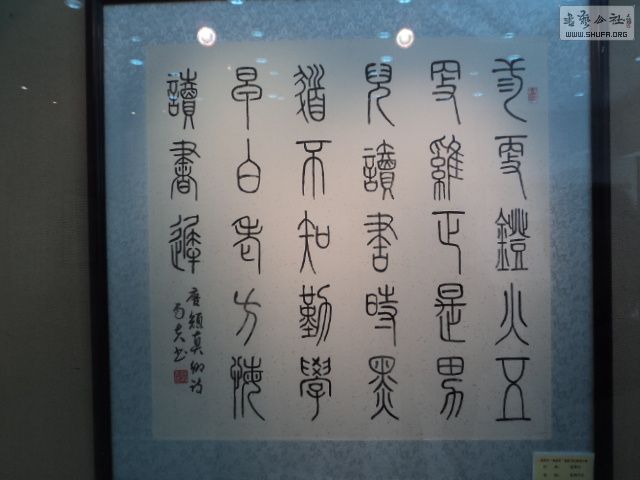 三更鐙火五
更雞正是男
兒讀書時黑
髮不知勤學
早白方悔
讀書遲
唐顏真卿詩
夫书
书艺公社
WWW.SHUFA.ORG